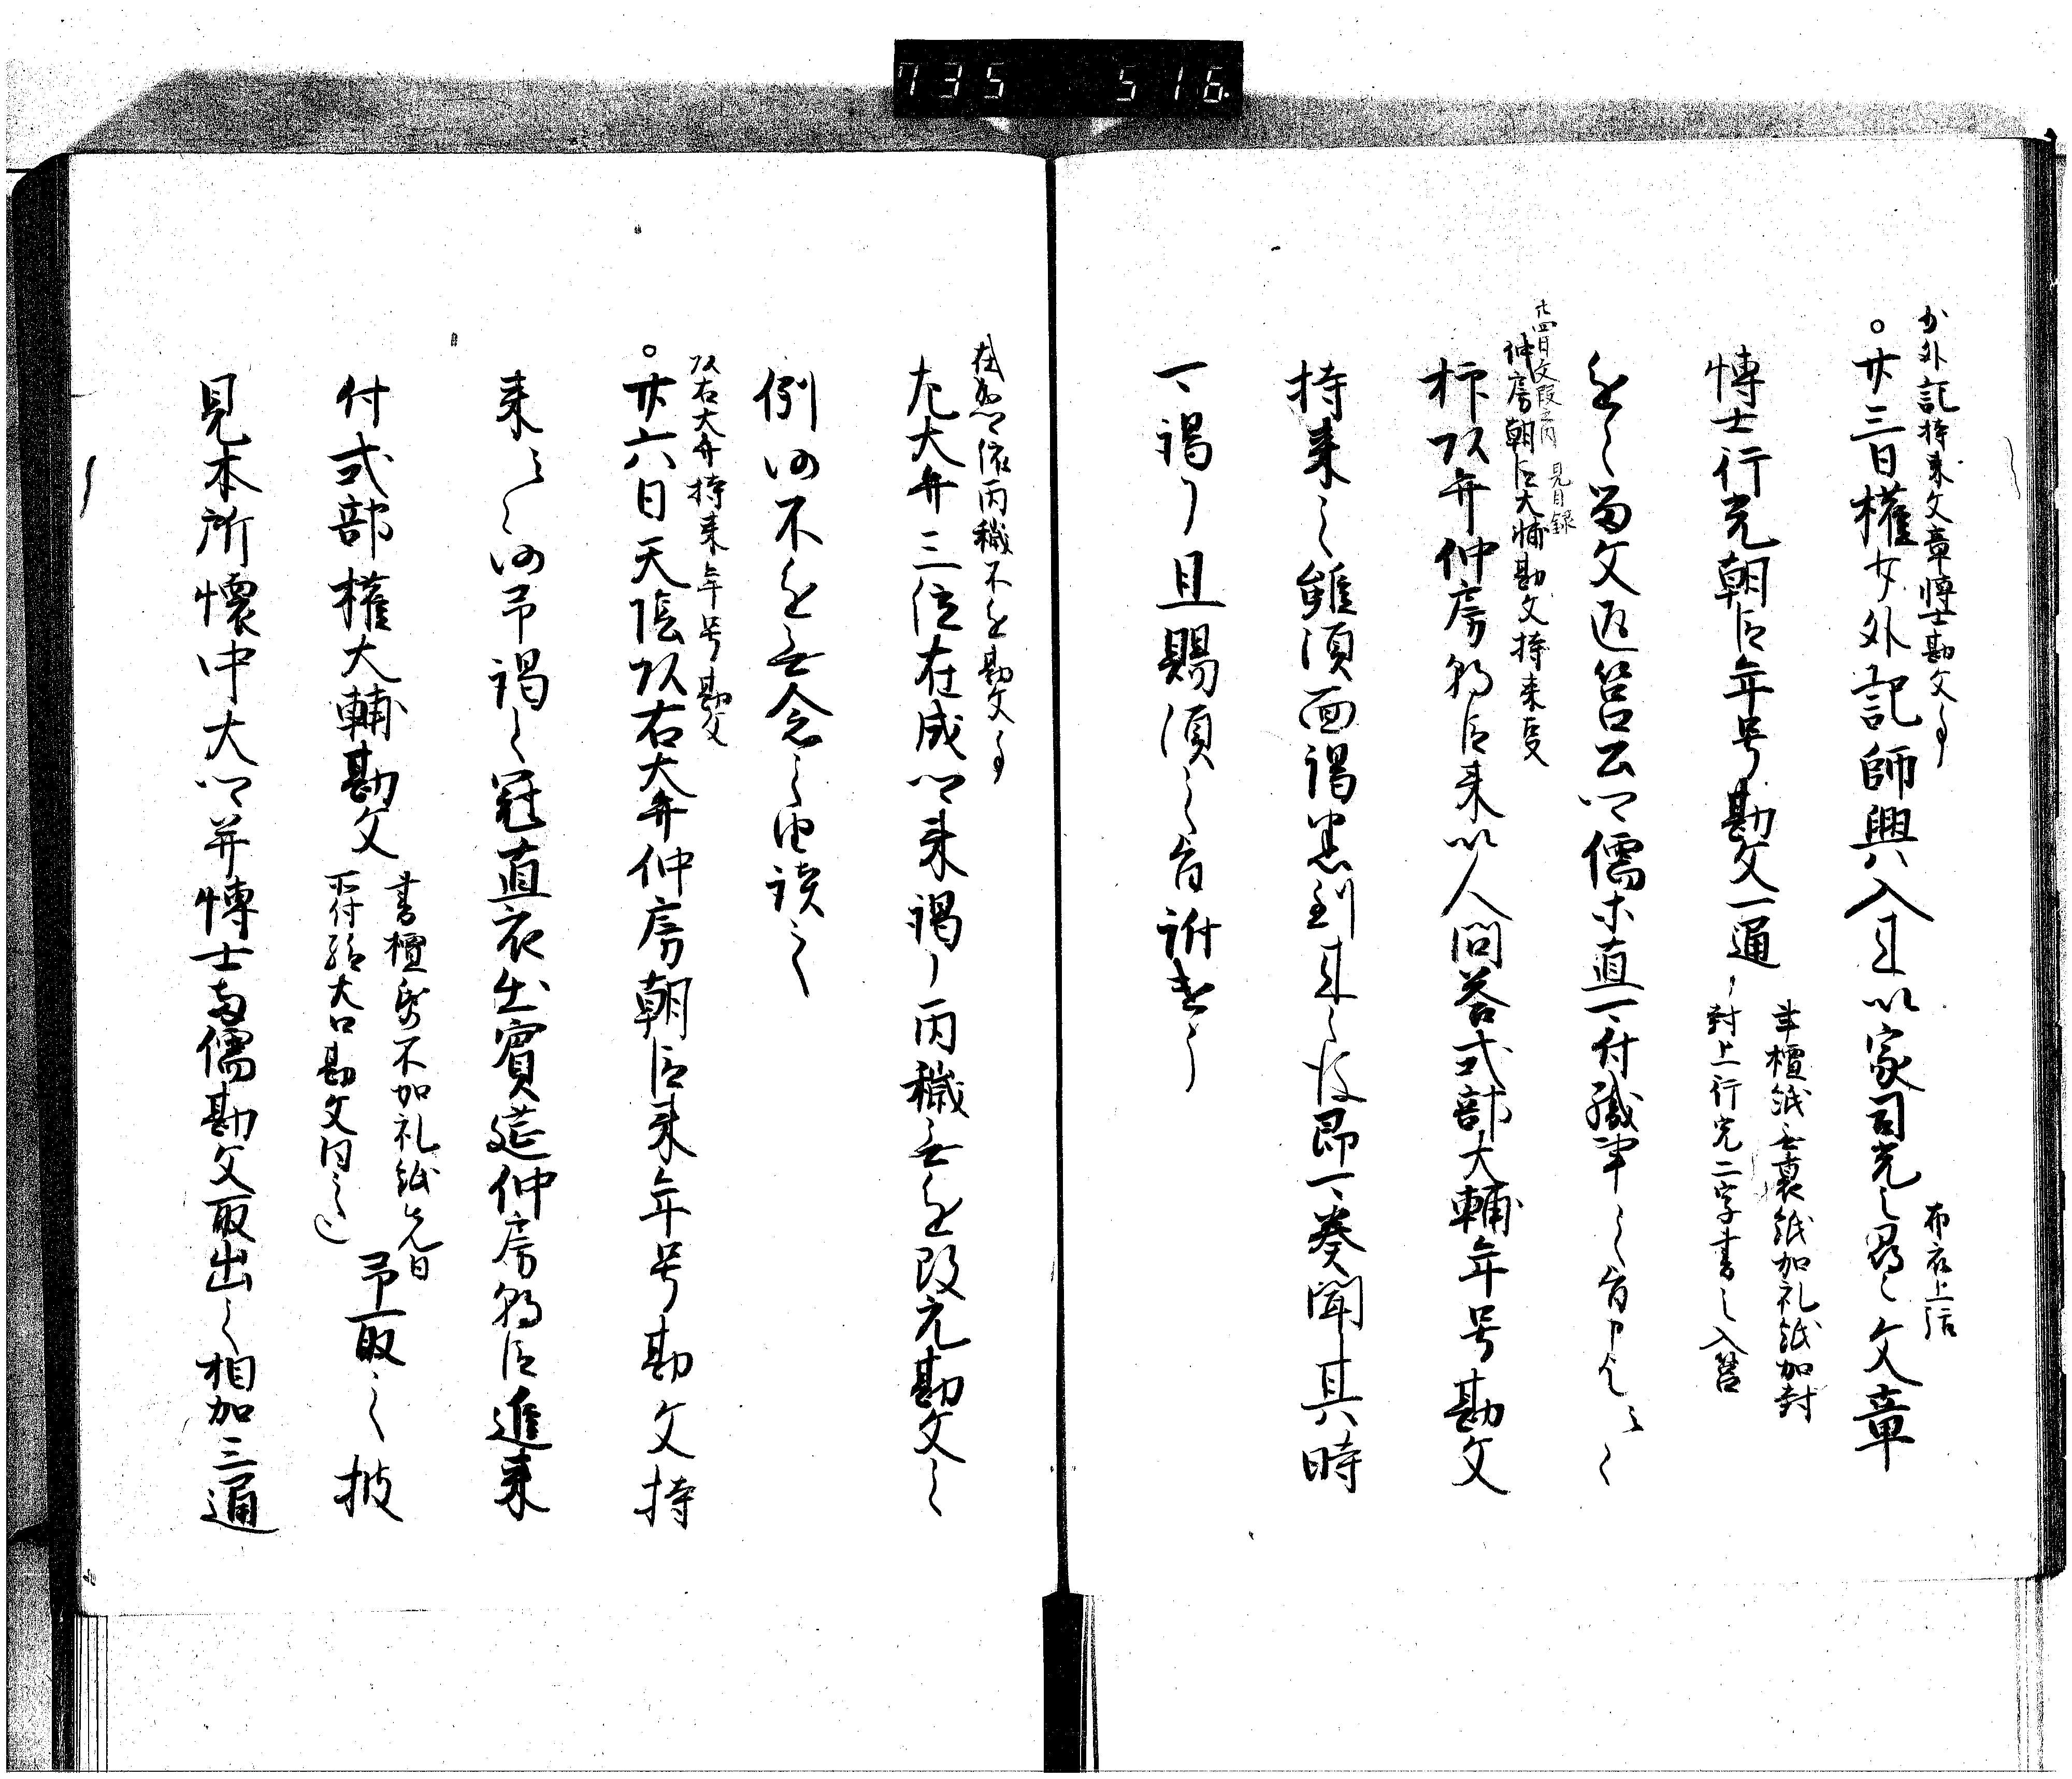 735 516
少外記持来文章博士勘文事
。廿三日権少外記師興入来以家司光之覧之文章
布衣上括
博士行光朝臣年号勘文一通
半檀紙無裏紙加礼紙加封
封上行光二字書之入筥
進之留文返筥云々儒卿直可付職事之旨申了云々
廿四日文段之内 見目録
仲房朝臣大輔勘文持来事
抑頭弁仲房朝臣来以人問答式部大輔年号勘文
持来之雖須面謁悉到来之後即可奏聞其時
可謁了且賜須之旨訴遣了
在成卿依丙穢不進勘文事
左大弁三位在成卿来謁了丙穢無進改元勘文之
例仍不進無念之由談之
頭右大弁持来年号勘文
。廿六日天陰頭右大弁仲房朝臣来年号勘文持
来云々仍予謁之冠直衣出賓筵仲房朝臣進来
付式部権大輔勘文
書檀紙不加礼紙先日
所付給大口勘文同之
予取之披
見本所懐中大卿并博士両儒勘文取出之相加三通